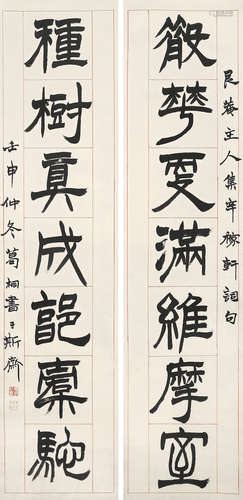 艮菴主人集辛稼軒詞句
散華更滿維摩室
種樹真成郭橐駝
壬申仲冬葛桐書于斯齋